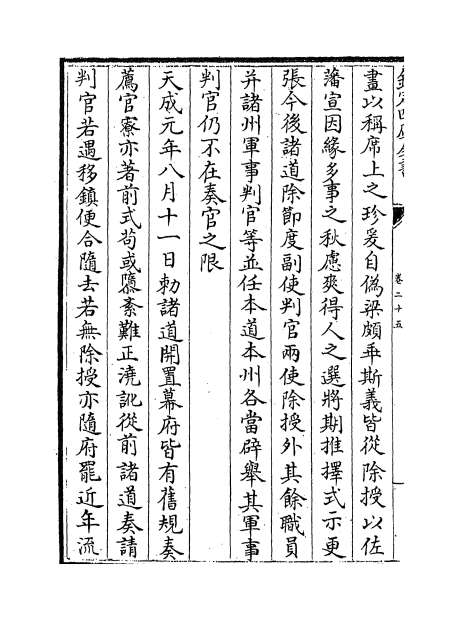 欽定四庫全書
卷二十五
畫以稱席上之珍爰自偽梁頗乖斯義皆從除授以佐
藩宣因緣多事之秋慮爽得人之選將期推擇式示更
張今後諸道除節度副使判官兩使除授外其餘職員
并諸州軍事判官等並任本道本州各當辟舉其軍事
判官仍不在奏官之限
天成元年八月十一日勅諸道開置幕府皆有舊規奏
薦官寮亦著前式苟或隳紊難正澆訛從前諸道奏請
判官若遇移鎮便合隨去若無除授亦隨府罷近年流